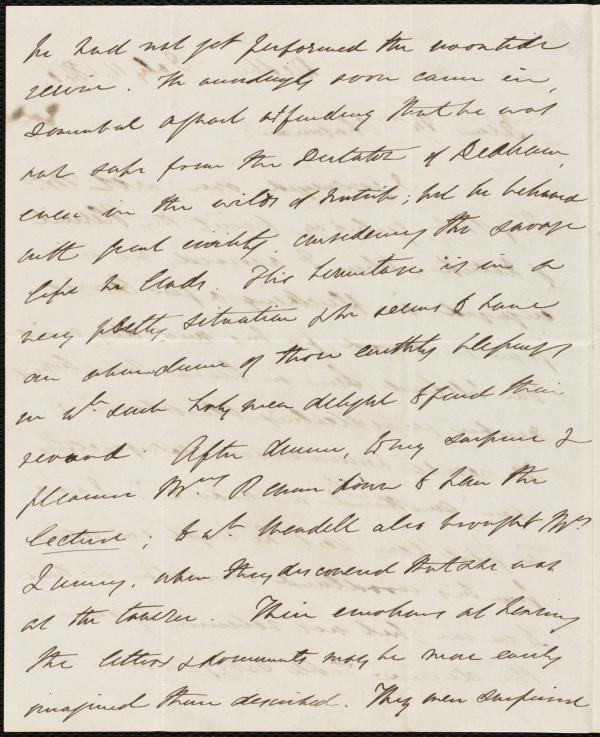 he had not yet performed the noontide
service. He accordingly soon came in,
somewhat aghast at finding that he was
not safe from the Dictator of Dedham,
even in the wilds of Natick; but he behaved
with great civility, considering the savage
life he leads. His hermitage is in a
very pretty situation & he seems to have
an abundance of those earthly blessings
in wh. such holy men delight to find their
reward. After dinner, to my surprise &
pleasure Mrs P. came down to hear the
lecture; & Wendell also brought Mrs
Quincy, when they discovered that she was
at the tavern. Their emotions at hearing
the letters & documents may be more easily
imagined than described. They were surprised